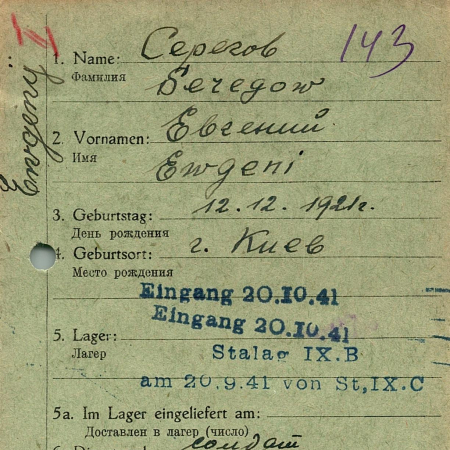 143
1. Name: Серегов
Фамилия
Seregow
2. Vornamen: Евгений
Имя
Ewgeni
3. Geburtstag: 12.12.1921г.
День рождения
4. Geburtsort: г. Киев
Место рождения
Eingang 20.10.41
Eingang 20.10.41
5. Lager: Stalag IX.B
Лагер
am 20.9.41 von St,IX.C
5a. Im Lager eingeliefert am:
Доставлен в лагер (число)
солдат